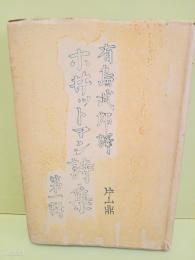 有島武郎訳
ホヰットマン詩集
第一輯